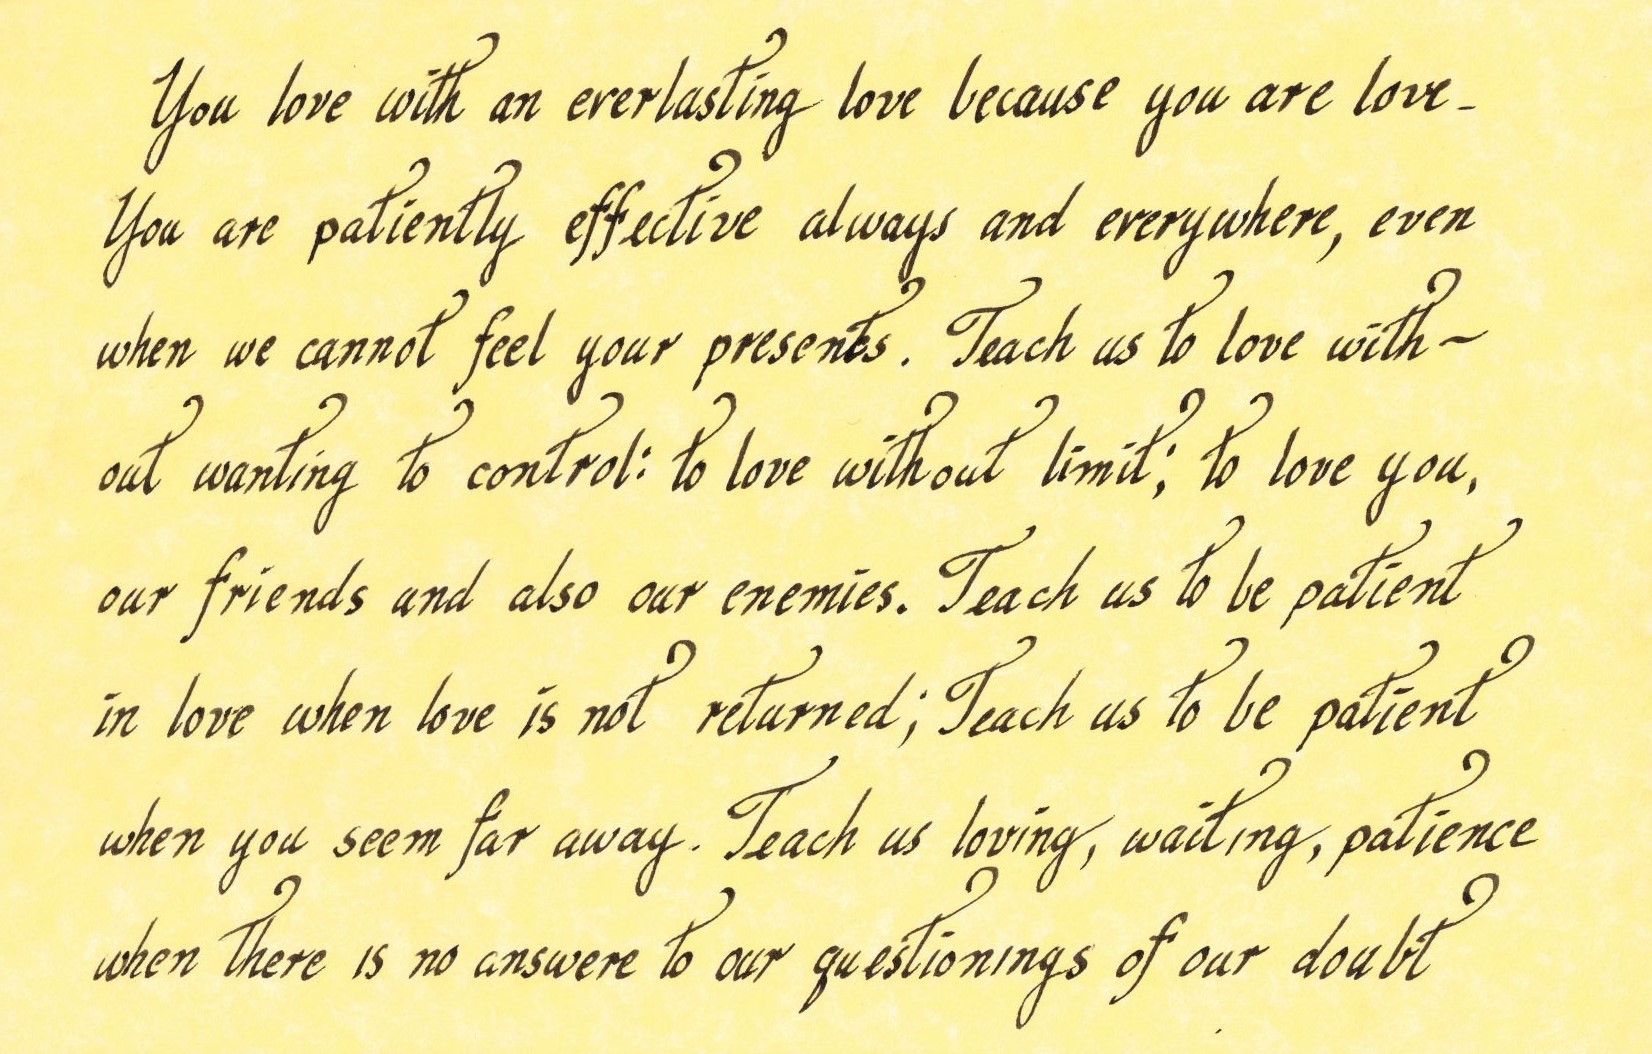 You love with an everlasting love because you are love-
You are patiently effective always and everywhere, even
when we cannot feel your presents. Teach us to love with~
out wanting to control: to love without limit; to love you,
our friends and also our enemies. Teach us to be patient
in love when love is not returned; Teach us to be patient
when you seem far away. Teach us loving, waiting, patience
when there is no answere to our questionings of our doubt